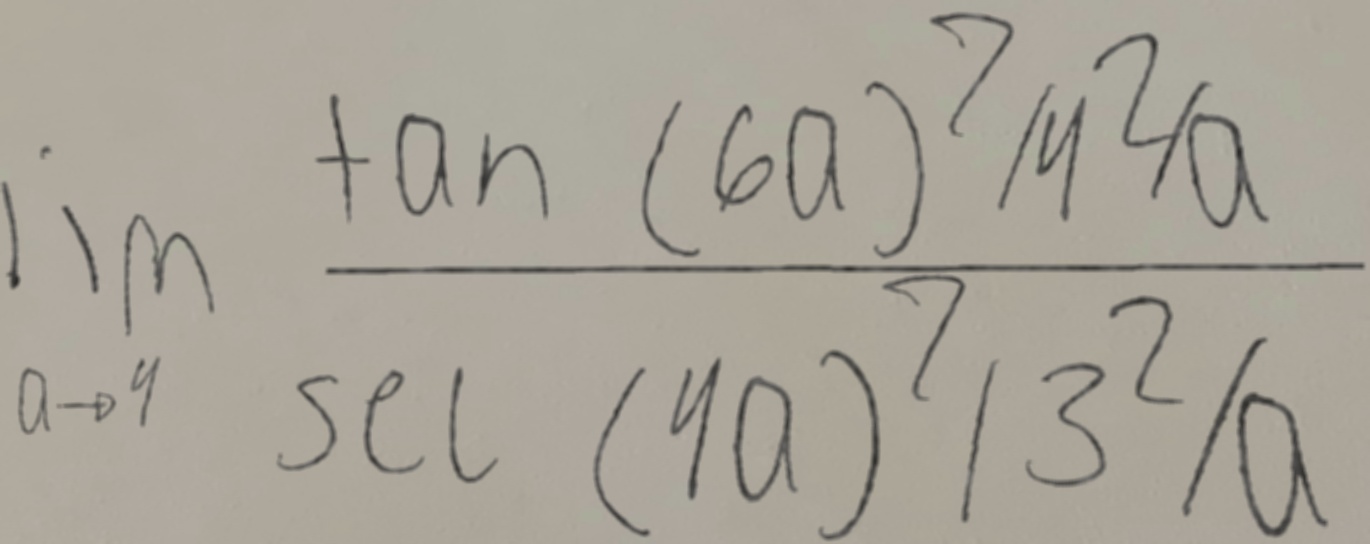 lim a→4 \frac{tan (6a)^7/4^2/a}{sec (4a)^7/3^2/a}